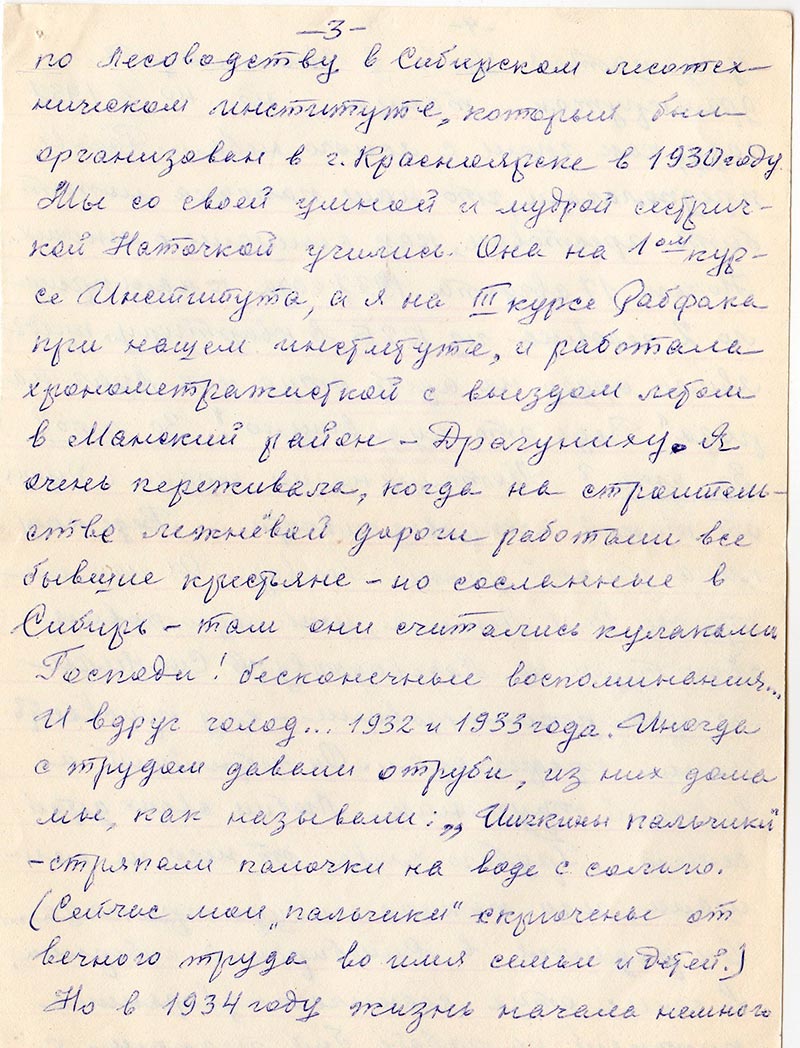 -3-
по лесоводству в Сибирском лесотех-
ническом институте, который был
организован в г. Красноярске в 1930 году.
Мы со своей умной и мудрой сестрич-
кой Наточкой учились. Она на 1ом кур-
се Института, а я на III курсе Рабфака
при нашем институте, и работала
хронометражисткой с выездом летом
в Манский район - Драгуниху. Я
очень переживала, когда на строитель-
стве лежнёвой дороги работали все
бывшие крестьяне - но сосланные в
Сибирь - там они считались кулаками
Господи! бесконечные воспоминания...
И вдруг голод... 1932 и 1933 года. Иногда
с трудом давали отруби, из них дома
мы, как называли: „ пальчики"
- стряпали палочки на воде с солью.
(Сейчас мои „пальчики" скрючены от
вечного труда во имя семьи и детей.)
Но в 1934 году жизнь начала немного